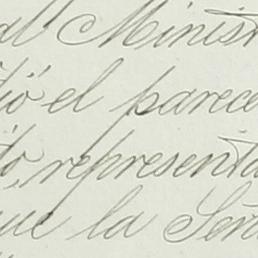 al Minist
tió el parece
to, representa
que la Señ